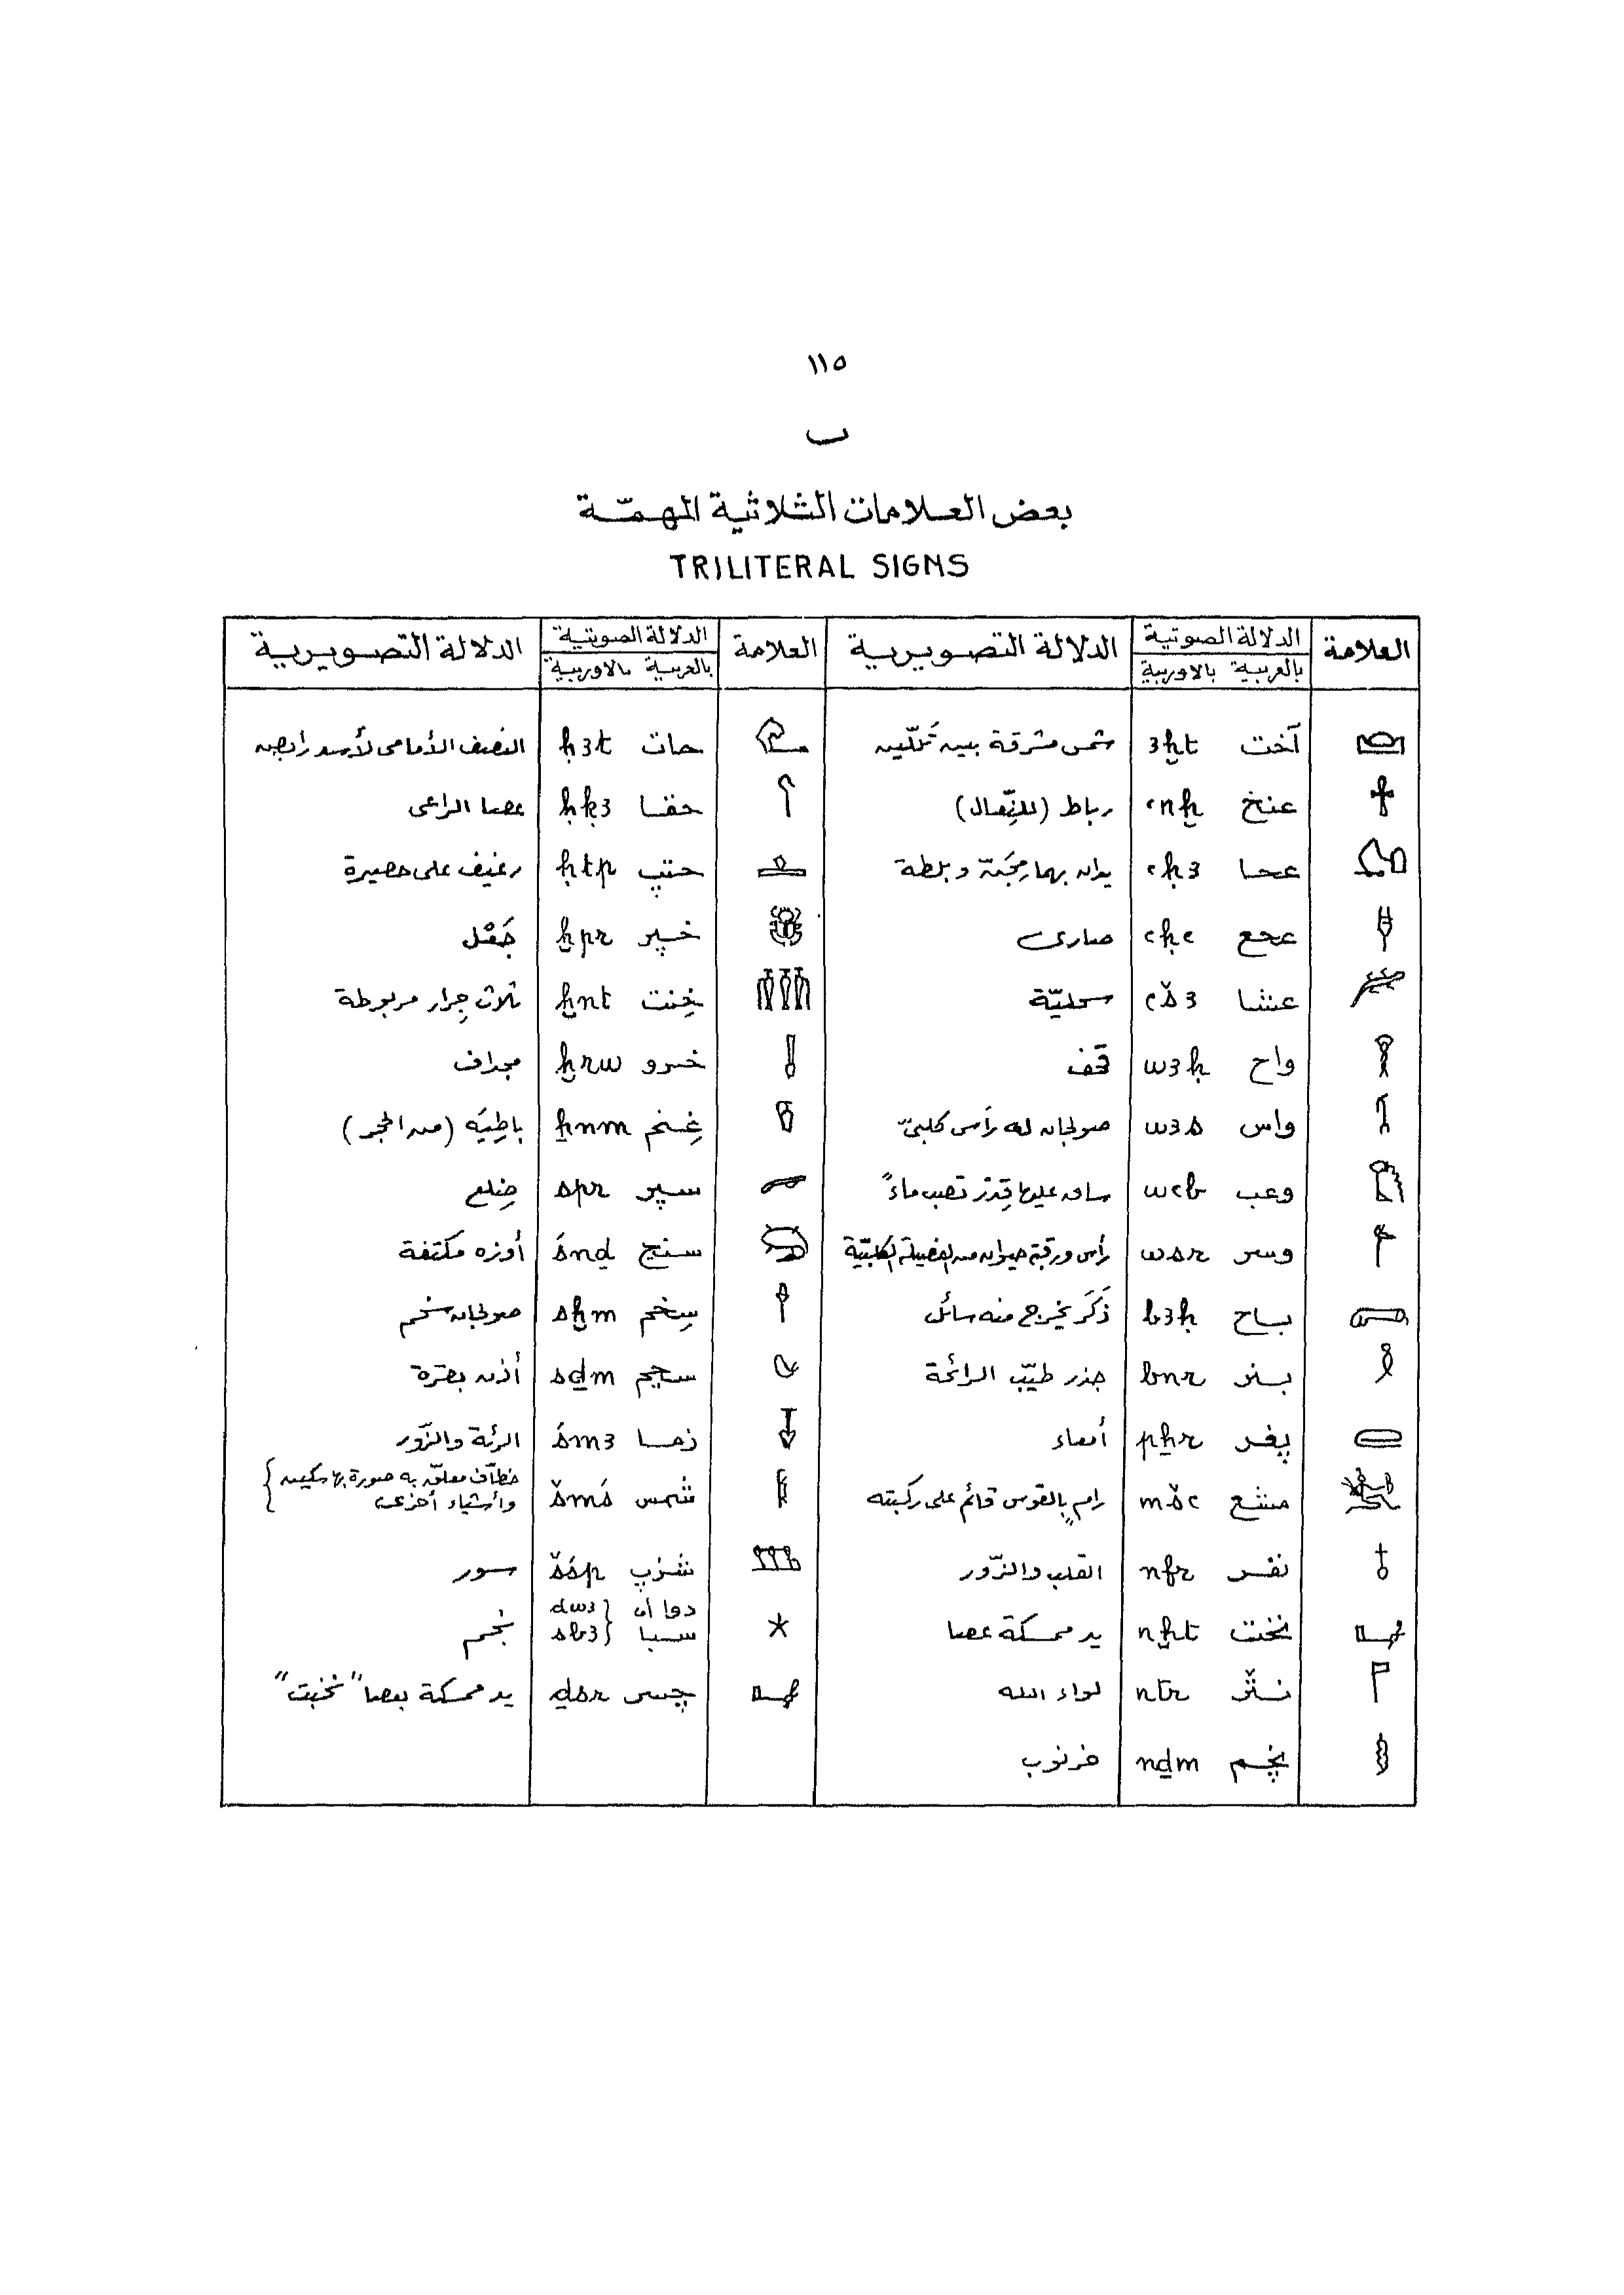 ١١٥
ب
بعض العلامات الثلاثية المهمّة
TRILITERAL SIGNS
العلامة الدلالة الصوتية الدلالة التصويرية العلامة الدلالة الصوتية الدلالة التصويرية
بالعربية بالاوربية بالعربية بالاوربية
آخت ꜣḫt شمس مشرقة بين تَلّين حات ḥꜣt النصف الأمامى لأسد رابض
عنخ ꜥnḫ رباط (للنِّعال) حقا ḥḳꜣ عصا الراعى
عحا ꜥḥꜣ يدان بهما مِجَنّة وبلطة حتپ ḥtp رغيف على حصيرة
عحع ꜥḥꜥ صارى خپر ḫpr جَعْل
عشا ꜥšꜣ سحليّة خِنت ḫnt ثلاث جِرار مربوطة
واح wꜣḥ قحف خرو ḫrw مجداف
واس wꜣs صولجان له رأس كلبىّ غِنم ẖnm باطِيَه (من الحجر)
وعب wꜥb ساق عليها قِدْر تصب ماءً سپر spr ضِلع
وسر wsr رأس ورقبة حيوان من الفصيلة الكلبيّة سنج śnḏ أوزه مكتفة
باح bꜣḥ ذَكَر يخرج منه سائل سِخم sḫm صولجان سخم
بنر bnr جذر طيّب الرائحة سچم sḏm أذن بقرة
پغر pẖr أمعاء زما śmꜣ الرئة والزّور
مشع mšꜥ رامٍ بالقوس قائم على ركبته شمس šmś خطّاف معلّق به صورة بها سكين وأشياء أخرى
نفر nfr القلب والزّور شزپ šśp سور
نخت nḫt يد ممسكة عصا دوا أو dwꜣ سبا sbꜣ نجم
نثر nṯr لواء الله چسر ḏsr يد ممسكة بعصا "نخبت"
نچم nḏm خرنوب